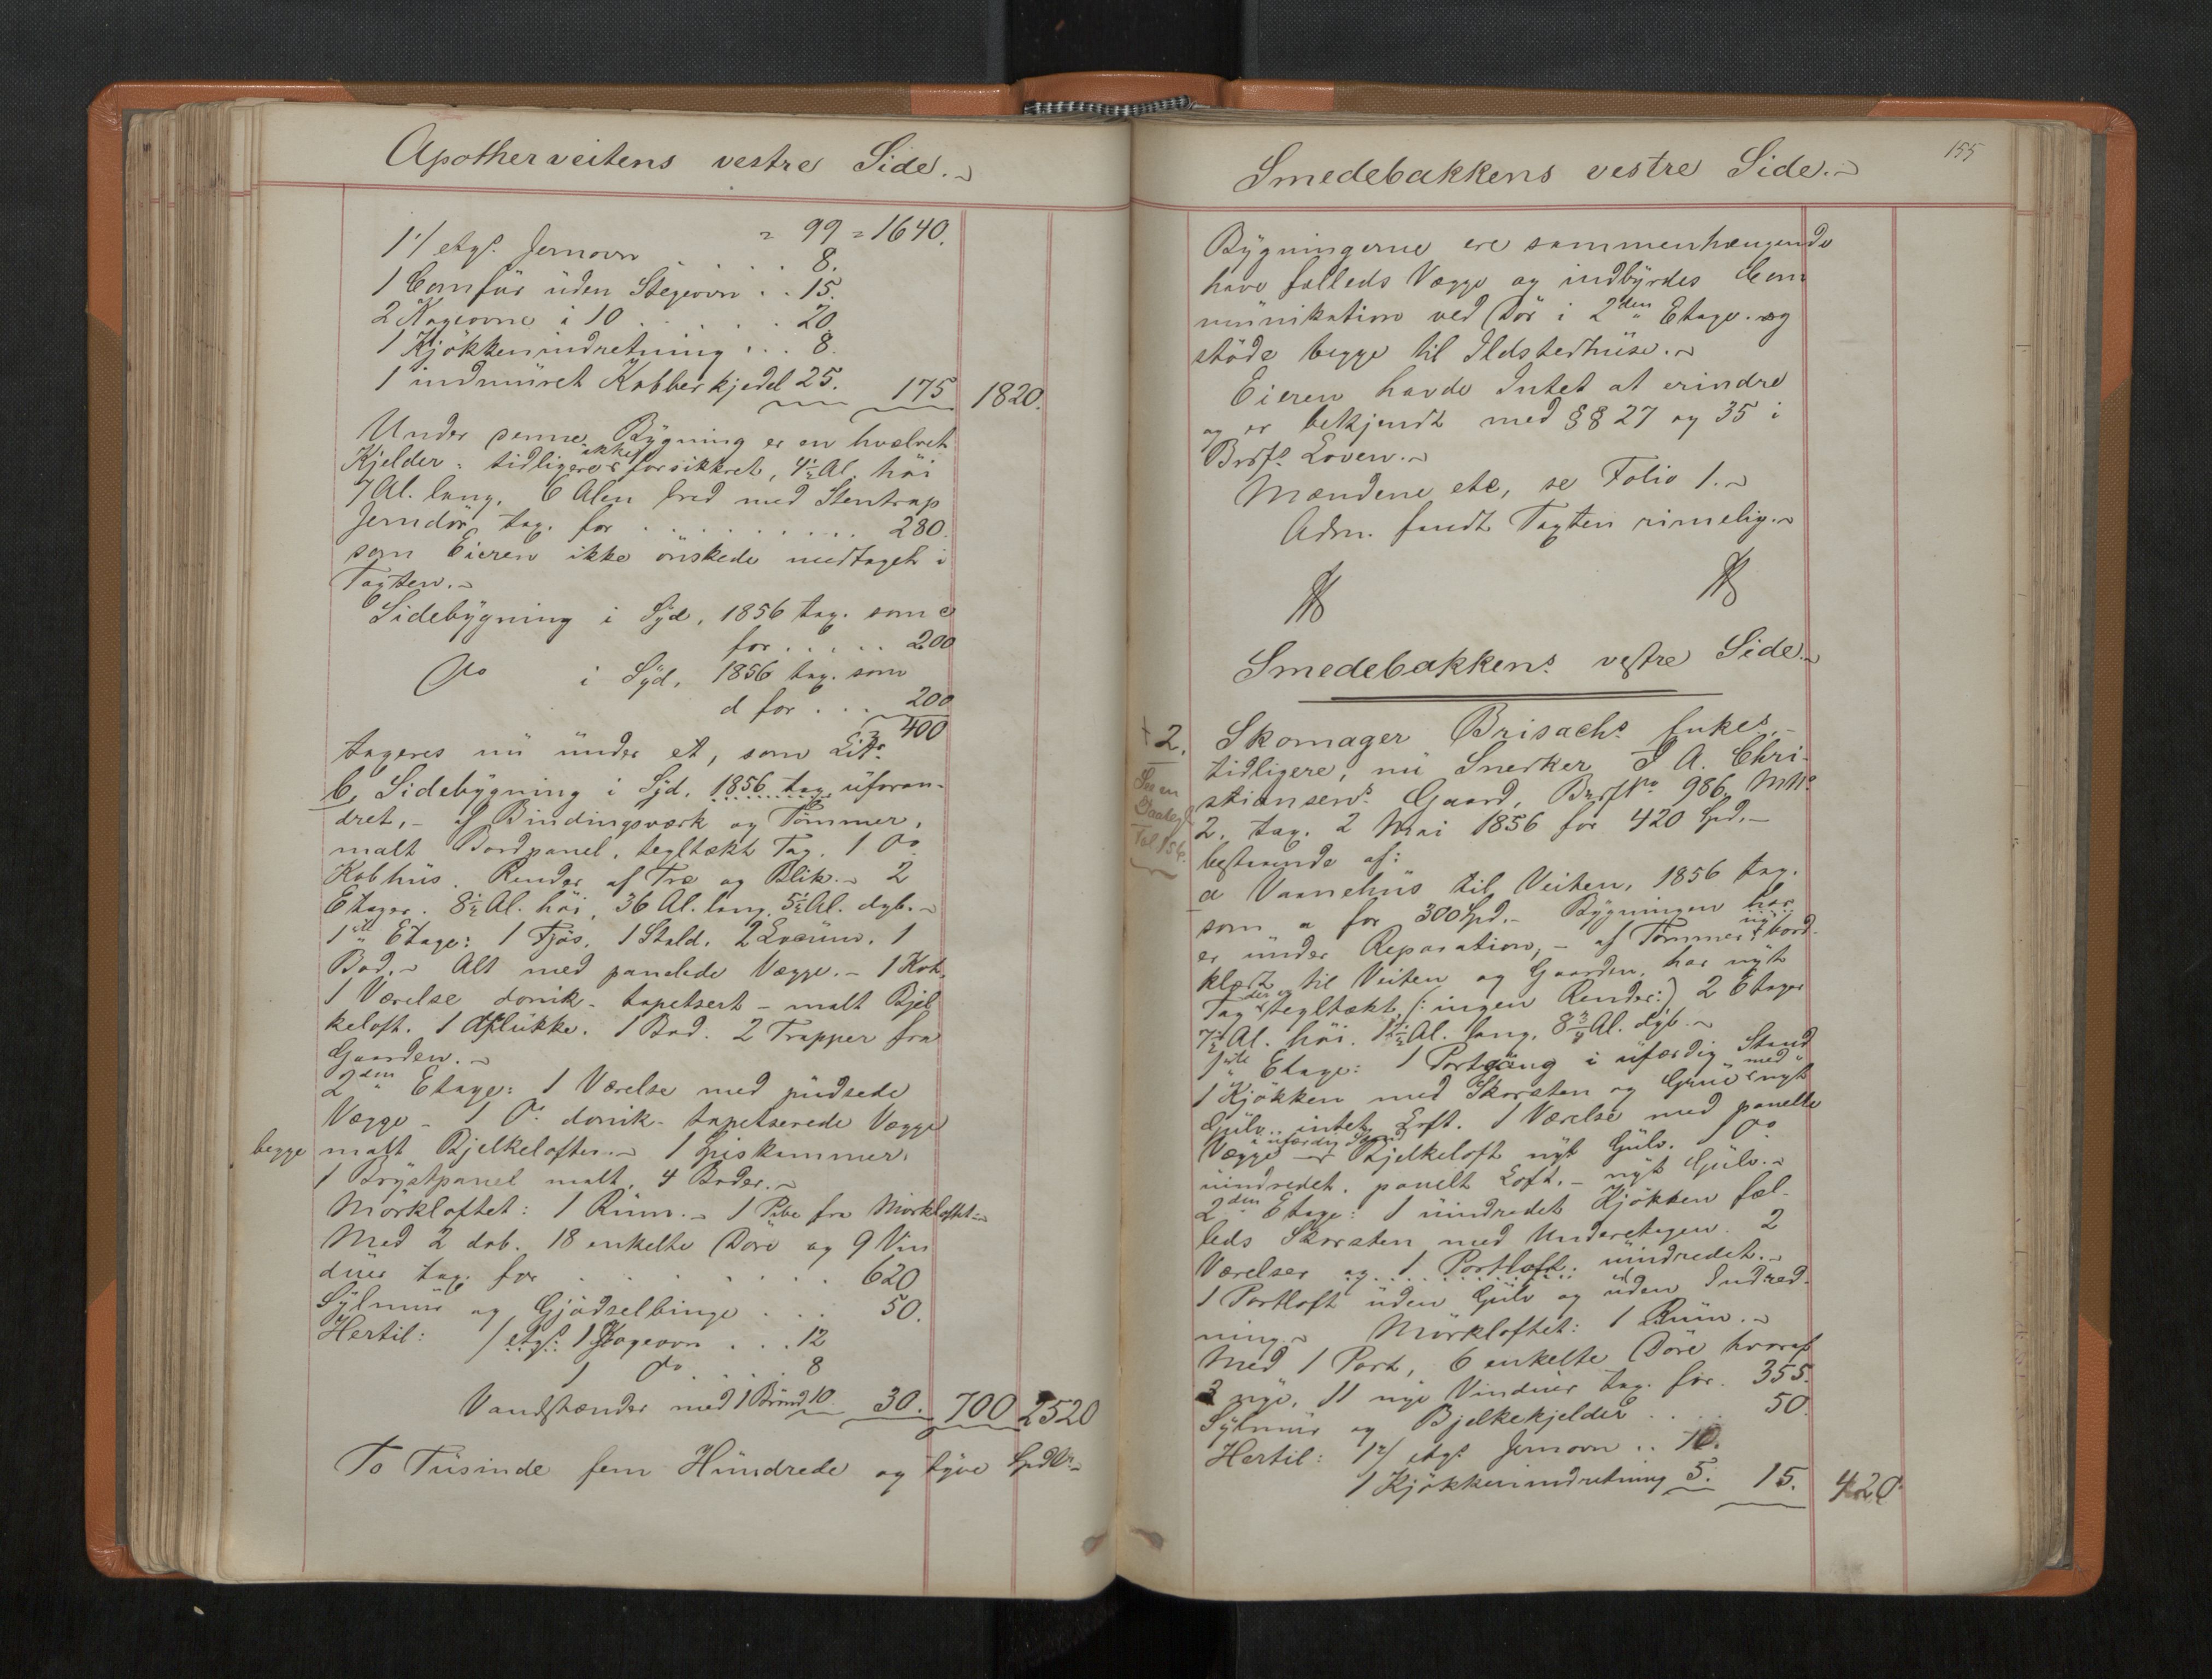 Apothekerveitens vestre Side.
= 99 = 1640.
1 1/ etgs. Jernovn . . . . 8.
1 Comfür üden Stegeovn . . 15.
2 Kageovne à 10 . . . . . 20.
1 Kjökkenindretning . . . 8.
1 indmüret Kobberkjedel 25. 175 1820.
Under denne Bygning er en hvælvet
Kjelder, tidligere ikke forsikkret, 4½ Al. höi
7 Al. lang, 6 Alen bred med Stentrap
Jerndör, tax. for . . . . . . . . . 280.
som Eieren ikke önskede medtaget i
Taxten.
Sidebÿgning i Sÿd, 1856 tax. som c
for . . . . . 200
Do i Sÿd, 1856 tax. som
d for . . . 200
400
taxeres nü ünder et, som Litr.
C, Sidebÿgning i Sÿd, 1856 tax. üforan-
dret, - af Bindingsværk og Tömmer,
malt Bordpanel, tegltækt Tag. 1 Do
Kobhüs. Render af Træ og Blik. 2
Etager. 8½ Al. höi, 36 Al. lang, 5½ Al. dyb.
1ste Etage: 1 Fjös, 1 Stald, 2 Locüm, 1
Bod. Alt med panelede Vægge. - 1 Kot,
1 Værelse donik- tapetsert - malt Bjel
keloft. 1 Aflükke. 1 Bod. 2 Trapper fra
Gaarden.
2den Etage: 1 Værelse med püdsede
Vægge - 1 Do donik- tapetserede Vægge
begge malt Bjelkelofter. 1 Spiskammer.
1 Brÿstpanel malt, 4 Boder.
Mörkloftet: 1 Rüm. 1 Pibe fra Mörkloftet.
Med 2 dob. 18 enkelte Döre og 9 Vin
düer tax. for . . . . . . . 620
Sÿlmür og Gjödselbinge . . . 50.
Hertil: 1 etgs: 1 Kageovn . . . 12
1 Do . . . . 8
Vandstænder med 1 Brönd 10. 30. 700 2520
To Tüsinde fem Hündrede og tÿve Spdlr.
155
Smedebakkens vestre Side.
Bÿgningerne ere sammenhængende
have fælleds Vægge og indbÿrdes Com
münikation ved Dör i 2den Etage og
stöde begge til Ildstedhüse.
Eieren havde Intet at erindre
og er bekjendt med §§ 27 og 35 i
Brdfs Loven.
Mændene etc, se Folio 1.
Adm. fandt Taxten rimelig.
Smedebakkens vestre Side.
+ 2. Skomager Brisachs Enkes,
tidligere, nü Snedker I A. Chri-
stiansens Gaard, Brdfs No 986. MNo
Se en
2. tax. 2 Mai 1856 for 420 Spd.
Fol 156.
bestaaende af:
a Vaanehüs til Veiten, 1856 tax.
som a for 300 Spd. Bÿgningen har
er ünder Reparation, - af Tömmer nÿ bord
klædt til Veiten og Gaarden, har nÿt
Tag tegltækt (: ingen Render :) 2 Etager
7½ Al. höi. 11½ Al. lang, 8¾ Al. dÿb.
1ste Etage: 1 Portgang i üfærdig Stand
1 Kjökken med Skorsten og Grüe med nÿt
Gülv, intet Loft. 1 Værelse med panelte
Vægge i üfærdig Stand Bjelkeloft nÿt Gülv. 1 Do
üindredet, panelt Loft, - nÿt Gülv.
2den Etage: 1 üindredet Kjökken fæl-
leds Skorsten med Underetagen. 2
Værelser og 1 Portloft üindredet.
1 Portloft üden Gülv og üden Indred-
ning. Mörkloftet: 1 Rüm.
Med 1 Port, 6 enkelte Döre hvoraf
3 nÿe, 11 nÿe Vindüer tax. for. 355.
Sÿlmür og Bjelkekjelder . . . 50.
Hertil: 1 2/ etgs Jernovn . . 10.
1 Kjökkenindretning 5. 15. 420.